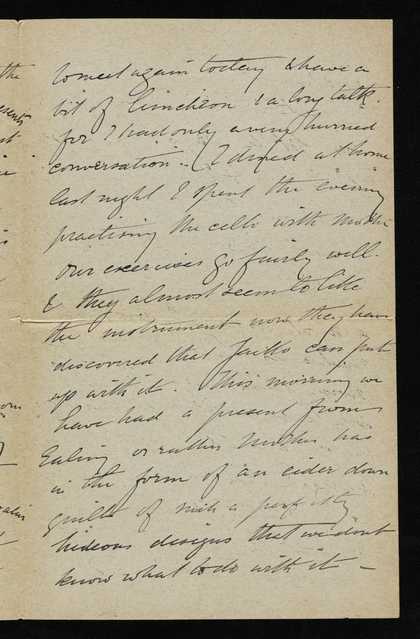 the
to meet again today & have a
bit of luncheon & a long talk.
for I had only a very hurried
conversation. I dined at home
last night & spent the evening
practising the cello with
our exercises go fairly well.
& they almost seem to like
the instrument now they have
discovered that can put
up with it. This morning we
have had a present from
Ealing or rather Mother has
in the form of an eider down
quilt of such a perfectly
hideous designs that we dont
know what to do with it –